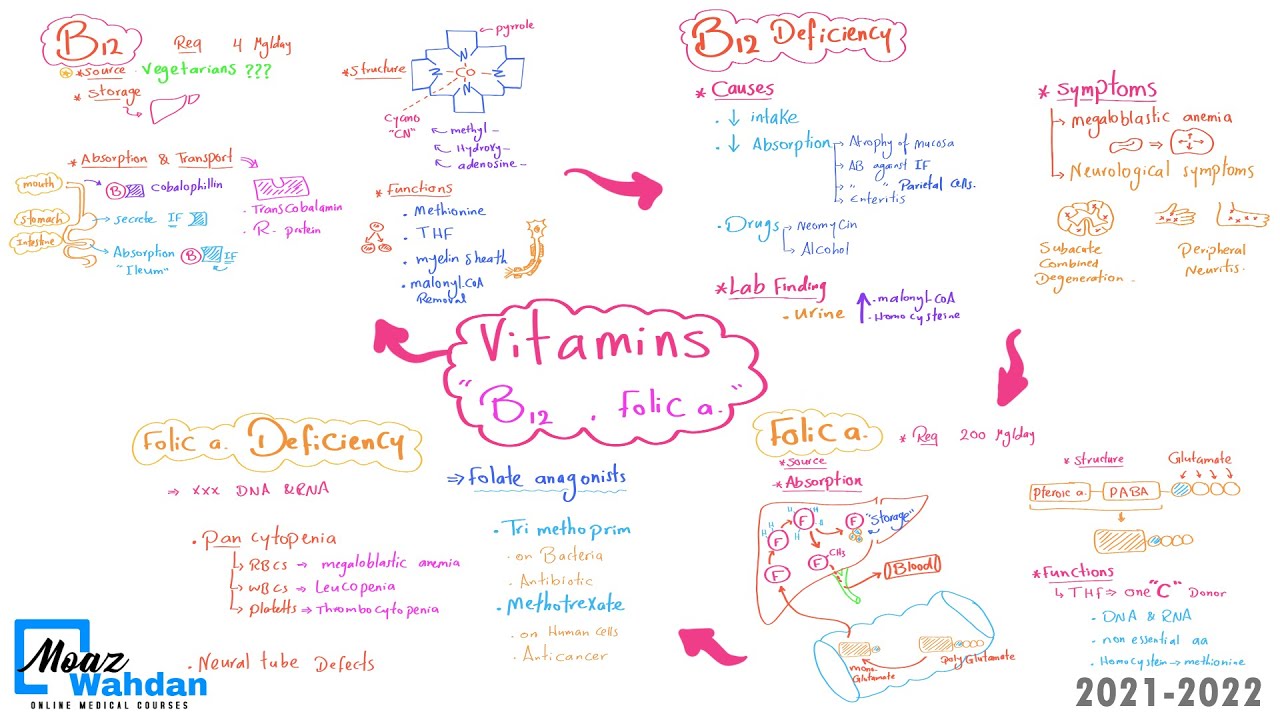 B12
Req 4 Mg/day
* Source . Vegetarians ???
* Storage
* Structure
pyrrole
N
N Co N
N
Cyano
"CN"
methyl -
Hydroxy -
adenosine -
* Absorption & Transport
mouth
B Cobalophillin
Stomach
secrete IF
Intestine
Absorption B IF
"Ileum"
. Trans Cobalamin
. R- protein
* Functions
. Methionine
. THF
. myelin sheath
. malonyl CoA
Removal
B12 Deficiency
* Causes
. ↓ intake
. ↓ Absorption
Atrophy of Mucosa
AB against IF
" " Parietal Cells.
Enteritis
. Drugs
Neomycin
Alcohol
* Lab Finding
. Urine ↑ . malonyl CoA
. Homocysteine
* Symptoms
megaloblastic anemia
Neurological symptoms
Subacute
Combined
Degeneration
Peripheral
Neuritis.
Vitamins
"B12 . Folic a."
Folic a.
* Req 200 Mg/day
* Source
* Absorption
H H
F F F "Storage"
F F CH3
Blood
mono
Glutamate
poly Glutamate
* Structure
Glutamate
Pteroic a. PABA
* Functions
↳ THF ⇒ one "C" Donor
. DNA & RNA
. non essential aa
. Homocystein → methionine
Folic a. Deficiency
⇒ xxx DNA & RNA
. Pan cytopenia
RBCs → megaloblastic anemia
WBCs → Leucopenia
platelts → Thrombocytopenia
. Neural tube Defects
⇒ Folate anagonists
. Tri methoprim
. on Bacteria
. Antibiotic
. Methotrexate
. on Human Cells
. Anticancer
Moaz
Wahdan
ONLINE MEDICAL COURSES
2021-2022